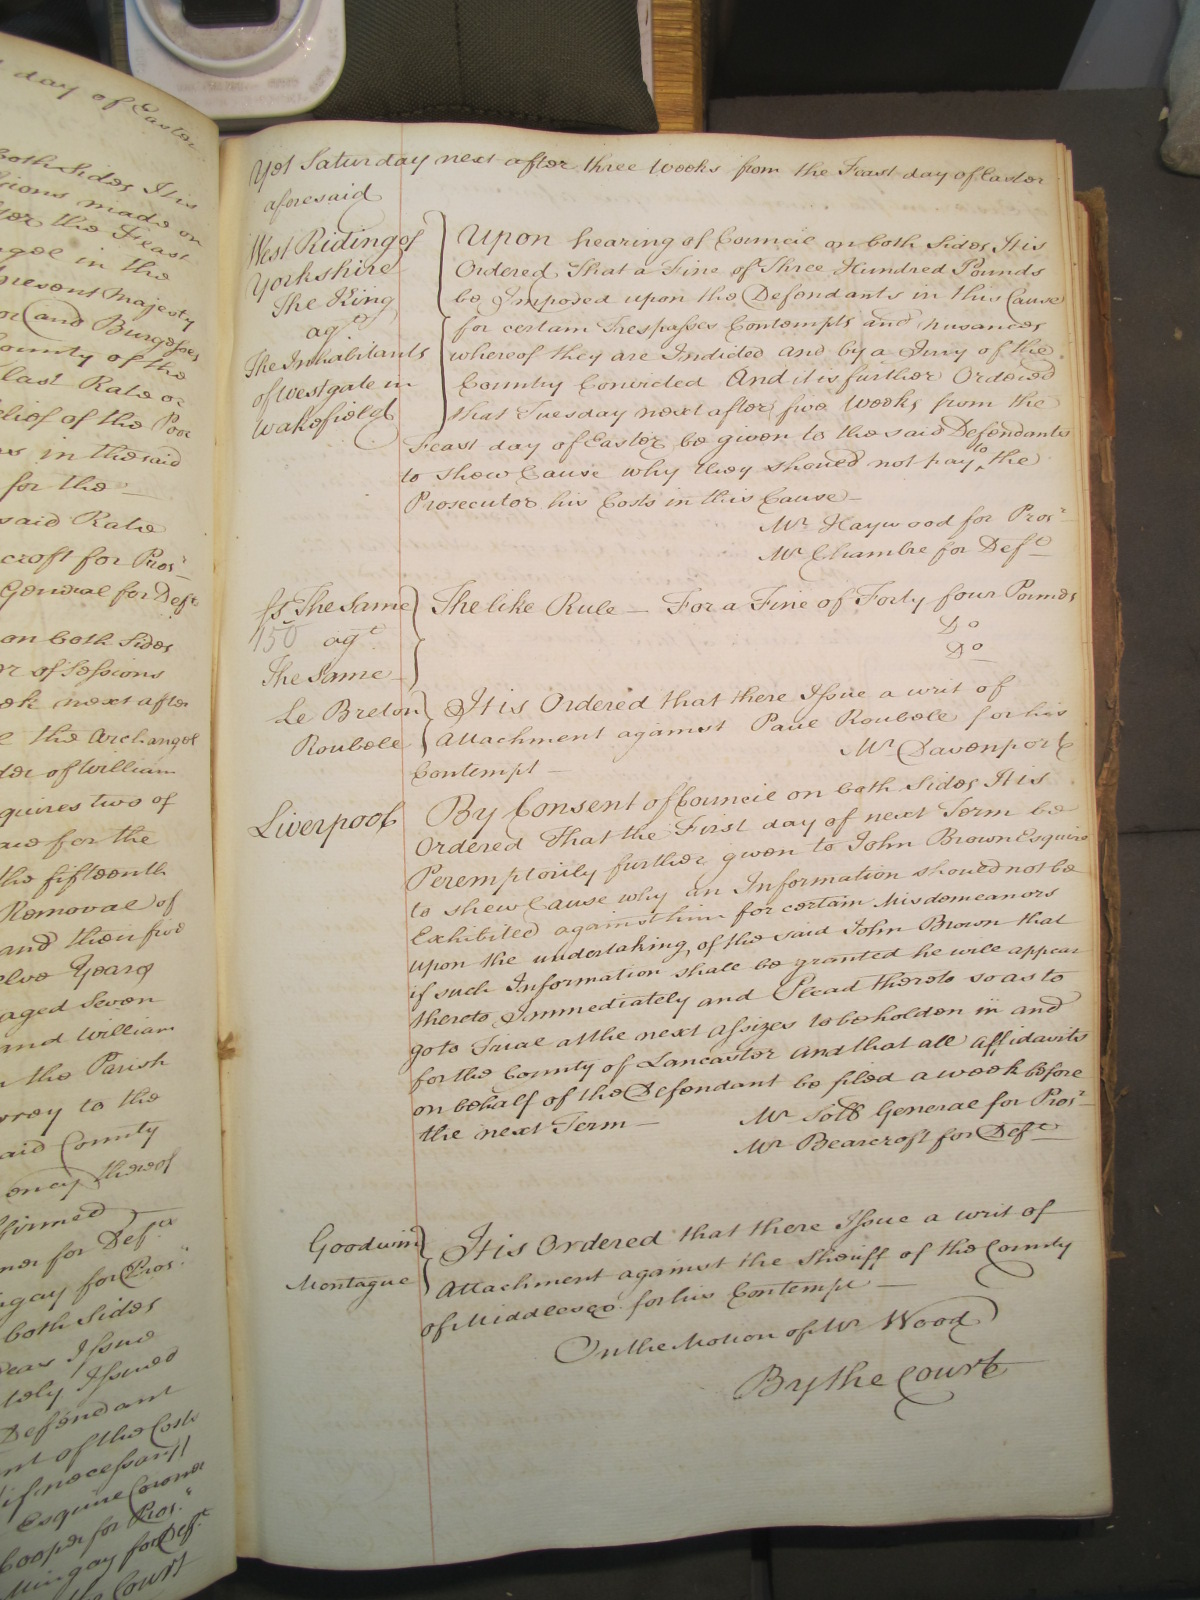 day of Easter
both Sides It is
sions made on
the Feast
in the
present Majesty
and Burgesses
County of the
last Rate or
Relief of the Poor
in the said
for the
said Rate
croft for Prosr
General for Deft
on both Sides
er of Sessions
next after
the Archangel
der of William
quires two of
for the
the fifteenth
Removal of
and their five
elve Years
aged Seven
and William
the Parish
to the
said County
thereof
firmed
for Deft
ngay for Prosr
both Sides
Issue
tely Issued
Defendant
nt of the Costs
if necessary
Esquire Coroner
Cooper for Prosr
Mingay for Deft
the Court
Yet Saturday next after three Weeks from the Feast day of Easter
aforesaid
West Riding of
Yorkshire
The King
agt
The Inhabitants
of Westgate in
Wakefield
Upon hearing of Councill on both Sides It is
Ordered That a Fine of Three Hundred Pounds
be Imposed upon the Defendants in this Cause
for certain Trespasses Contempts and nusances
whereof they are Indicted and by a Jury of the
Country Convicted And it is further Ordered
that Tuesday next after five Weeks from the
Feast day of Easter be given to the said Defendants
to shew Cause why they should not pay to the
Prosecutor his Costs in this Cause
Mr Haywood for Prosr
Mr Chambre for Deft
The Same
150 agt
The Same
The like Rule — For a Fine of Forty four Pounds
Do
Do
Le Breton
Roubele
It is Ordered that there Issue a writ of
Attachment against Paul Roubele for his
Contempt —
Mr Davenport
Liverpool
By Consent of Councill on both Sides It is
Ordered That the First day of next Term be
Peremptorily further given to John Brown Esquire
to shew Cause why an Information should not be
Exhibited against him for certain Misdemeanors
upon the undertaking of the said John Brown that
if such Information shall be granted he will appear
thereto Immediately and Plead thereto so as to
go to Trial at the next Assizes to be holden in and
for the County of Lancaster and that all Affidavits
on behalf of the Defendant be filed a week before
the next Term —
Mr Solr General for Prosr
Mr Bearcroft for Deft
Goodwin
Montague
It is Ordered that there Issue a writ of
Attachment against the Sheriff of the County
of Middlesex for his Contempt —
On the Motion of Mr Wood
By the Court